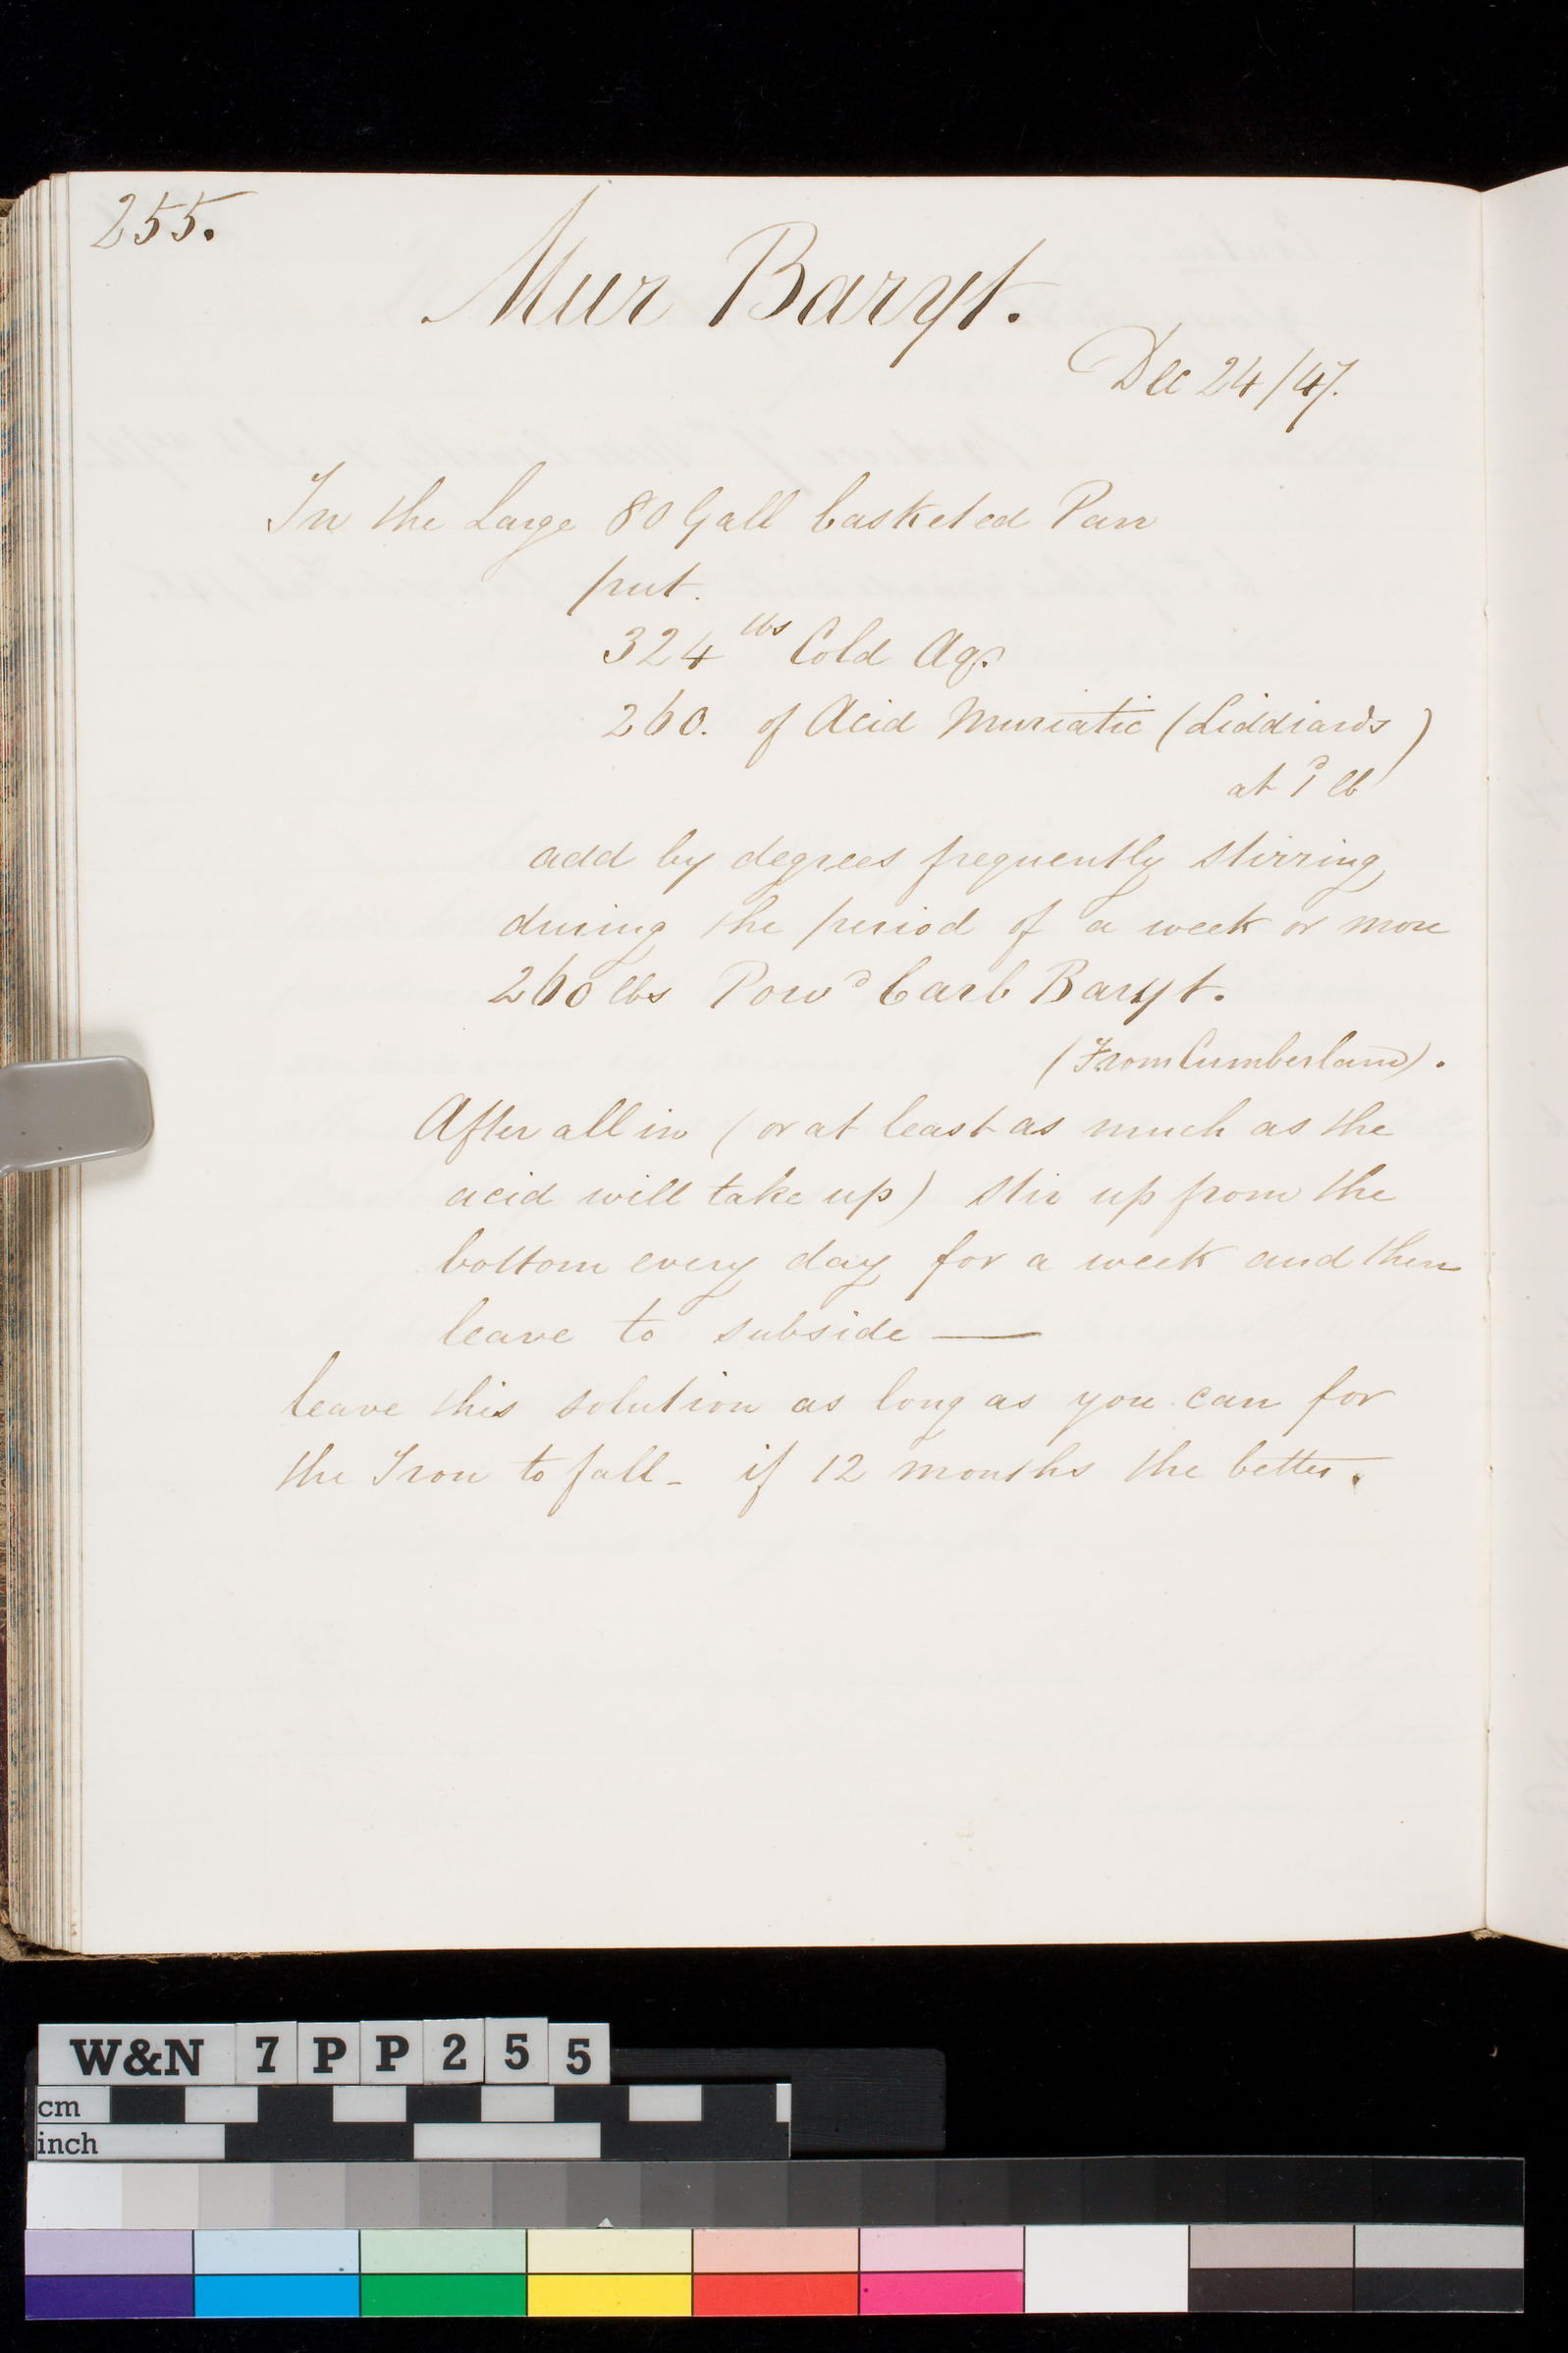 255.
Mur Baryt.
Dec 24/47.
In the Large 80 Gall basketed Pan
put.
324 lbs Cold Aq.
260. of Acid Muriatic (Liddiards)
at 1d lb
add by degrees frequently stirring
during the period of a week or more
260 lbs Powd Carb Baryt.
(From Cumberland).
After all in (or at least as much as the
acid will take up) stir up from the
bottom every day for a week and then
leave to subside —
leave this solution as long as you can for
the Iron to fall - if 12 months the better.
W&N 7PP255
cm
inch